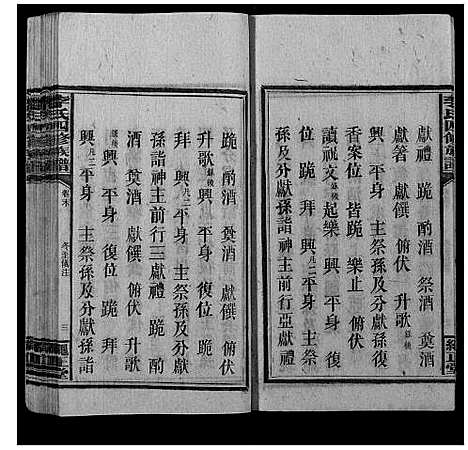 李氏四修族譜
獻禮 跪 酌酒 祭酒 奠酒
獻箸 獻饌 俯伏 升歌歌後
興 平身 主祭孫及分獻
香案位 皆跪 樂止
讀祝文 起樂 興 平身 復
位 跪 拜 興凡二平身 主祭
孫及分獻孫詣神主前行亞獻禮
跪 酌酒 奠酒 獻饌 俯伏
升歌歌後 興 平身 復位 跪
拜 興凡二平身 主祭孫及分獻
孫詣神主前行三獻禮 跪 酌
酒 奠酒 獻饌 俯伏 升歌
歌後 興 平身 復位 跪 拜
興凡二平身 主祭孫及分獻孫詣
李氏四修族譜 卷末 冬至儀注 三